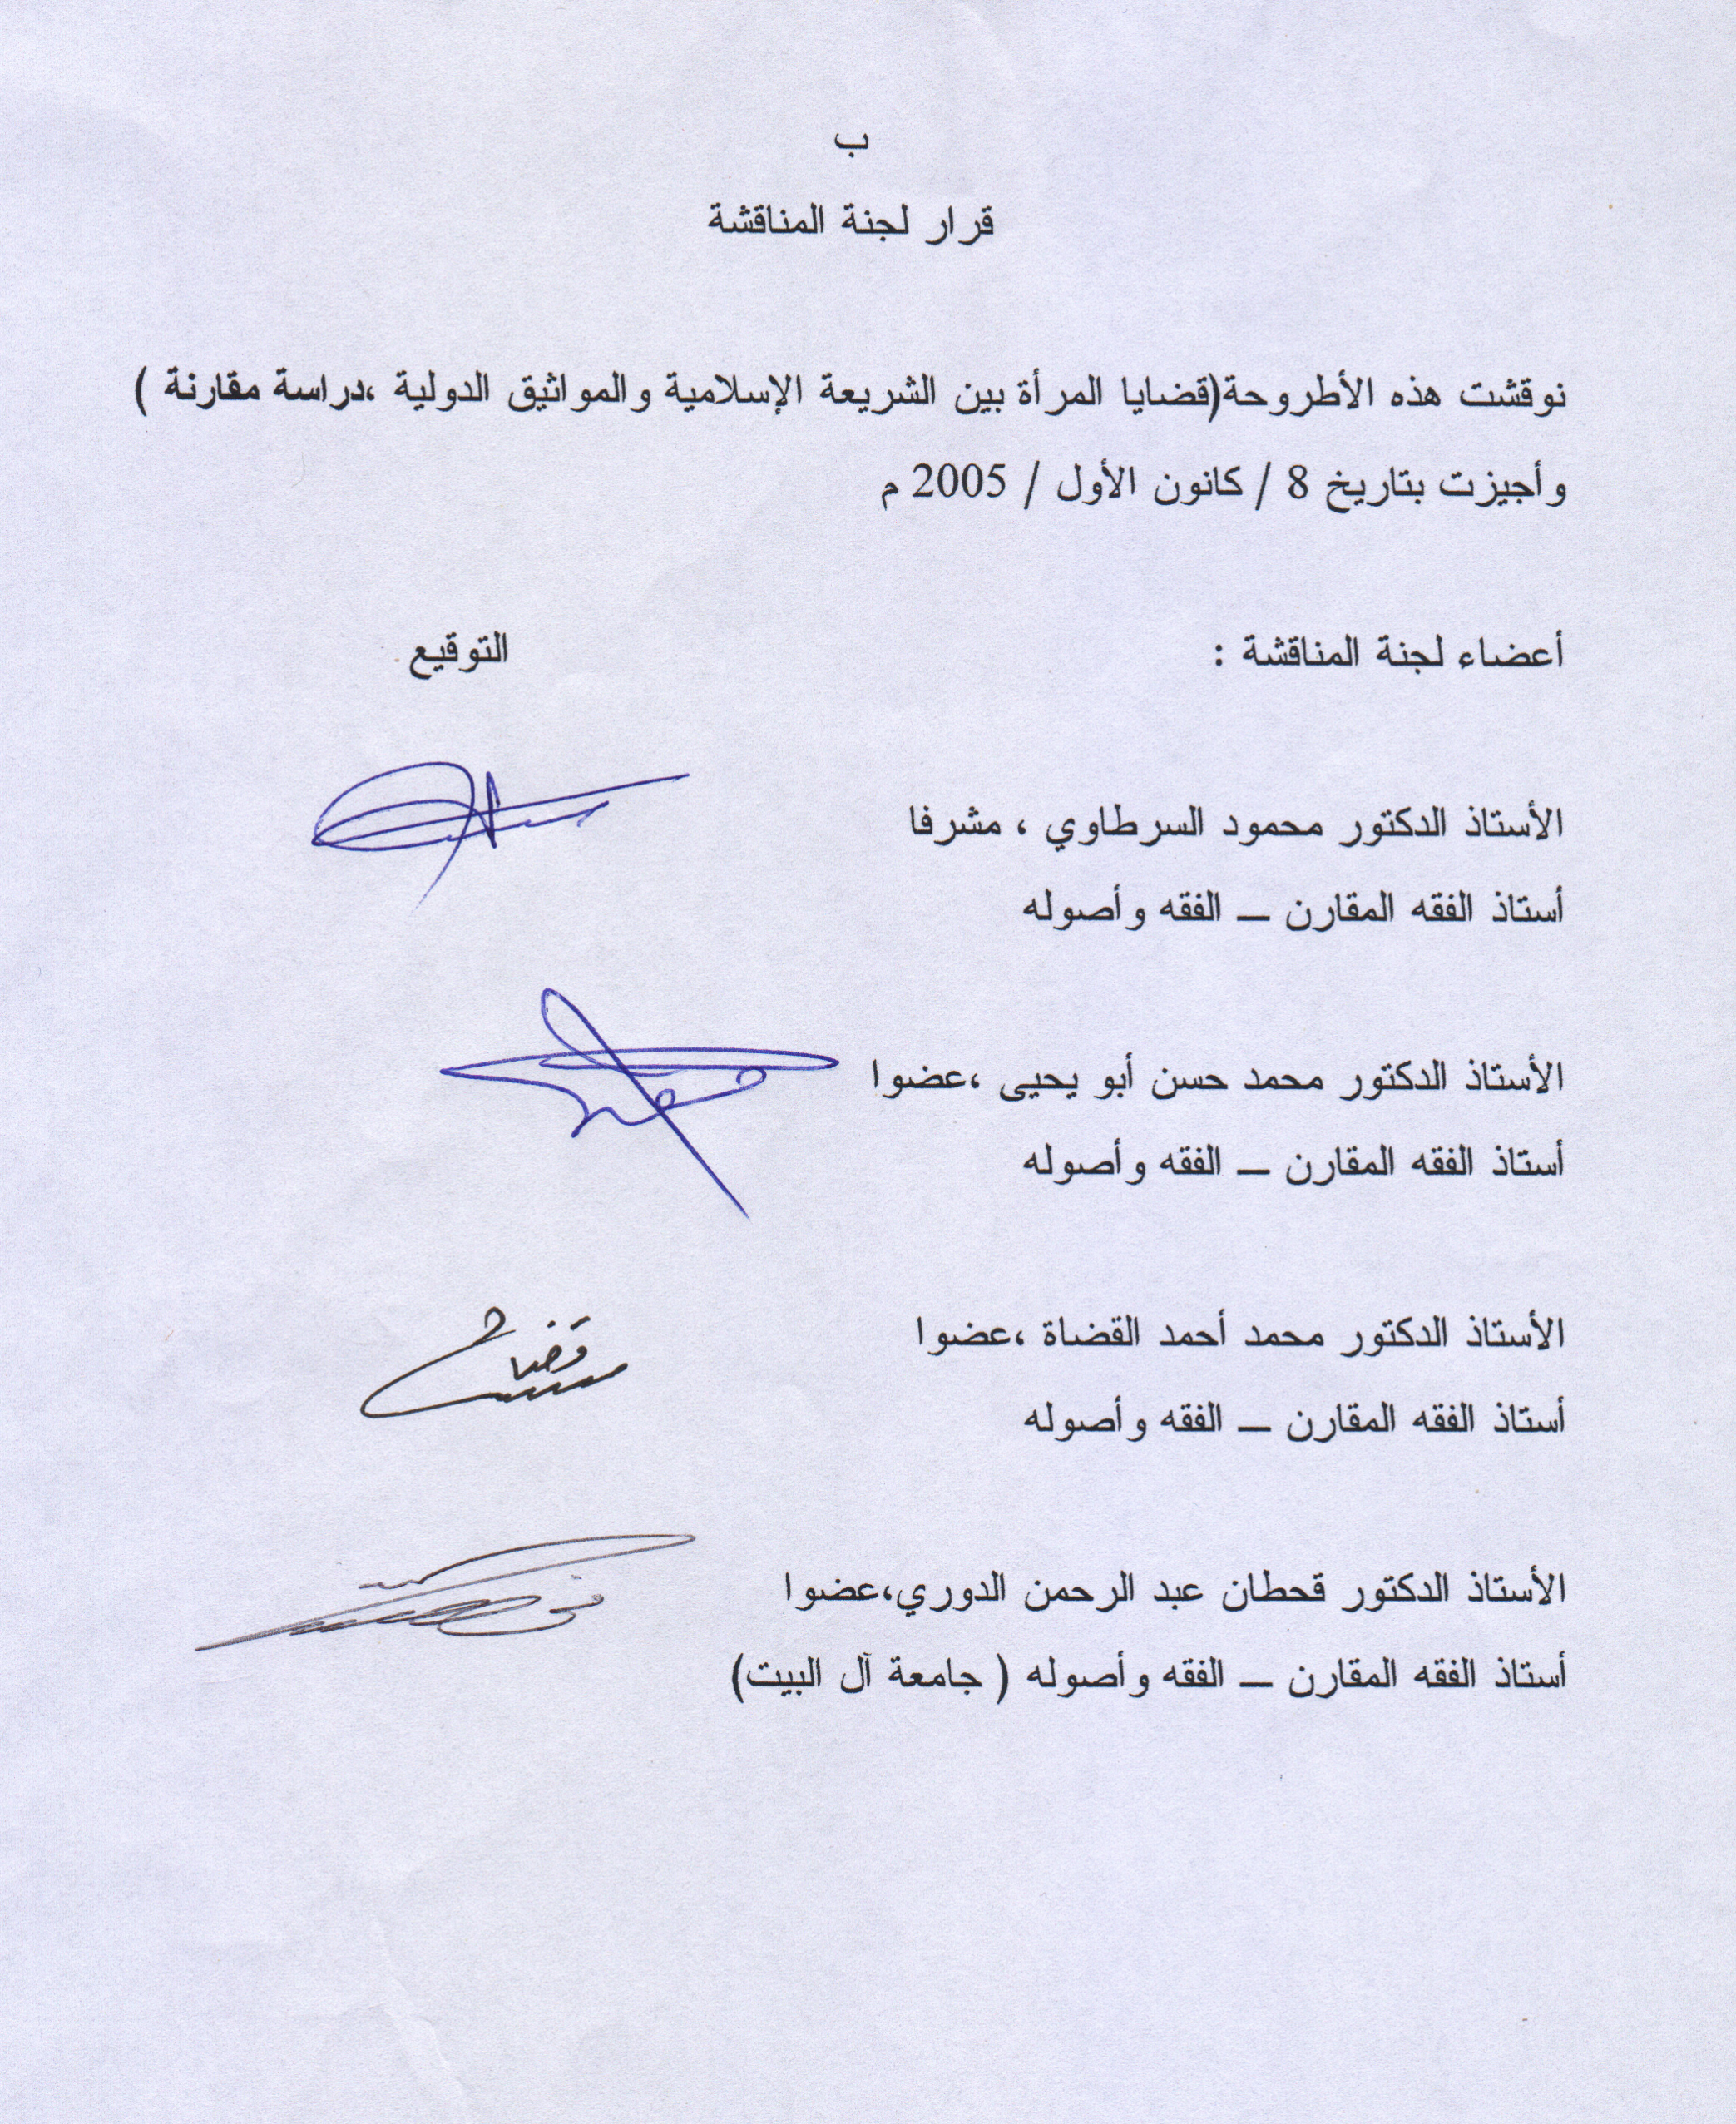 ب
قرار لجنة المناقشة
نوقشت هذه الأطروحة(قضايا المرأة بين الشريعة الإسلامية والمواثيق الدولية ،دراسة مقارنة )
وأجيزت بتاريخ 8 / كانون الأول / 2005 م
أعضاء لجنة المناقشة : التوقيع
الأستاذ الدكتور محمود السرطاوي ، مشرفا
أستاذ الفقه المقارن – الفقه وأصوله
الأستاذ الدكتور محمد حسن أبو يحيى ،عضوا
أستاذ الفقه المقارن – الفقه وأصوله
الأستاذ الدكتور محمد أحمد القضاة ،عضوا
أستاذ الفقه المقارن – الفقه وأصوله
الأستاذ الدكتور قحطان عبد الرحمن الدوري،عضوا
أستاذ الفقه المقارن – الفقه وأصوله ( جامعة آل البيت)